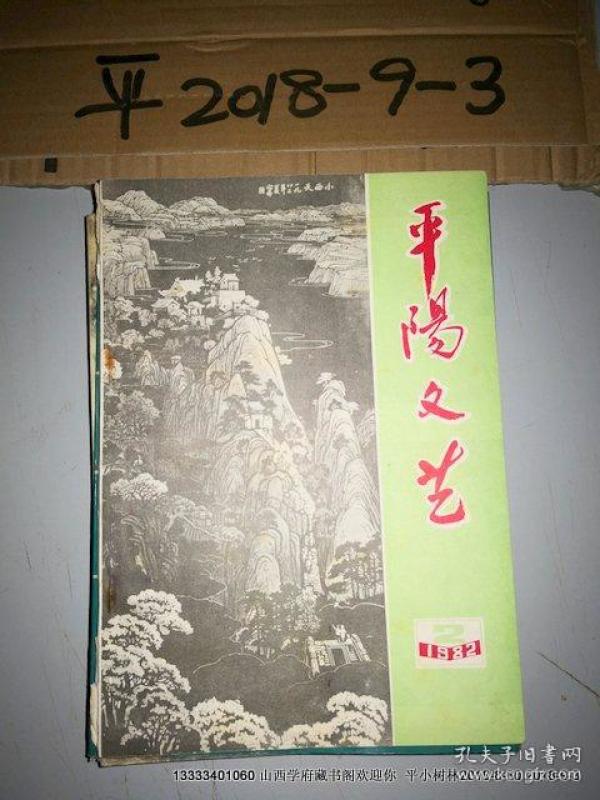 平2018-9-3
小西天
平陽文艺
2
1982
孔夫子旧書网
13333401060 山西学府藏书阁欢迎你 平小树林